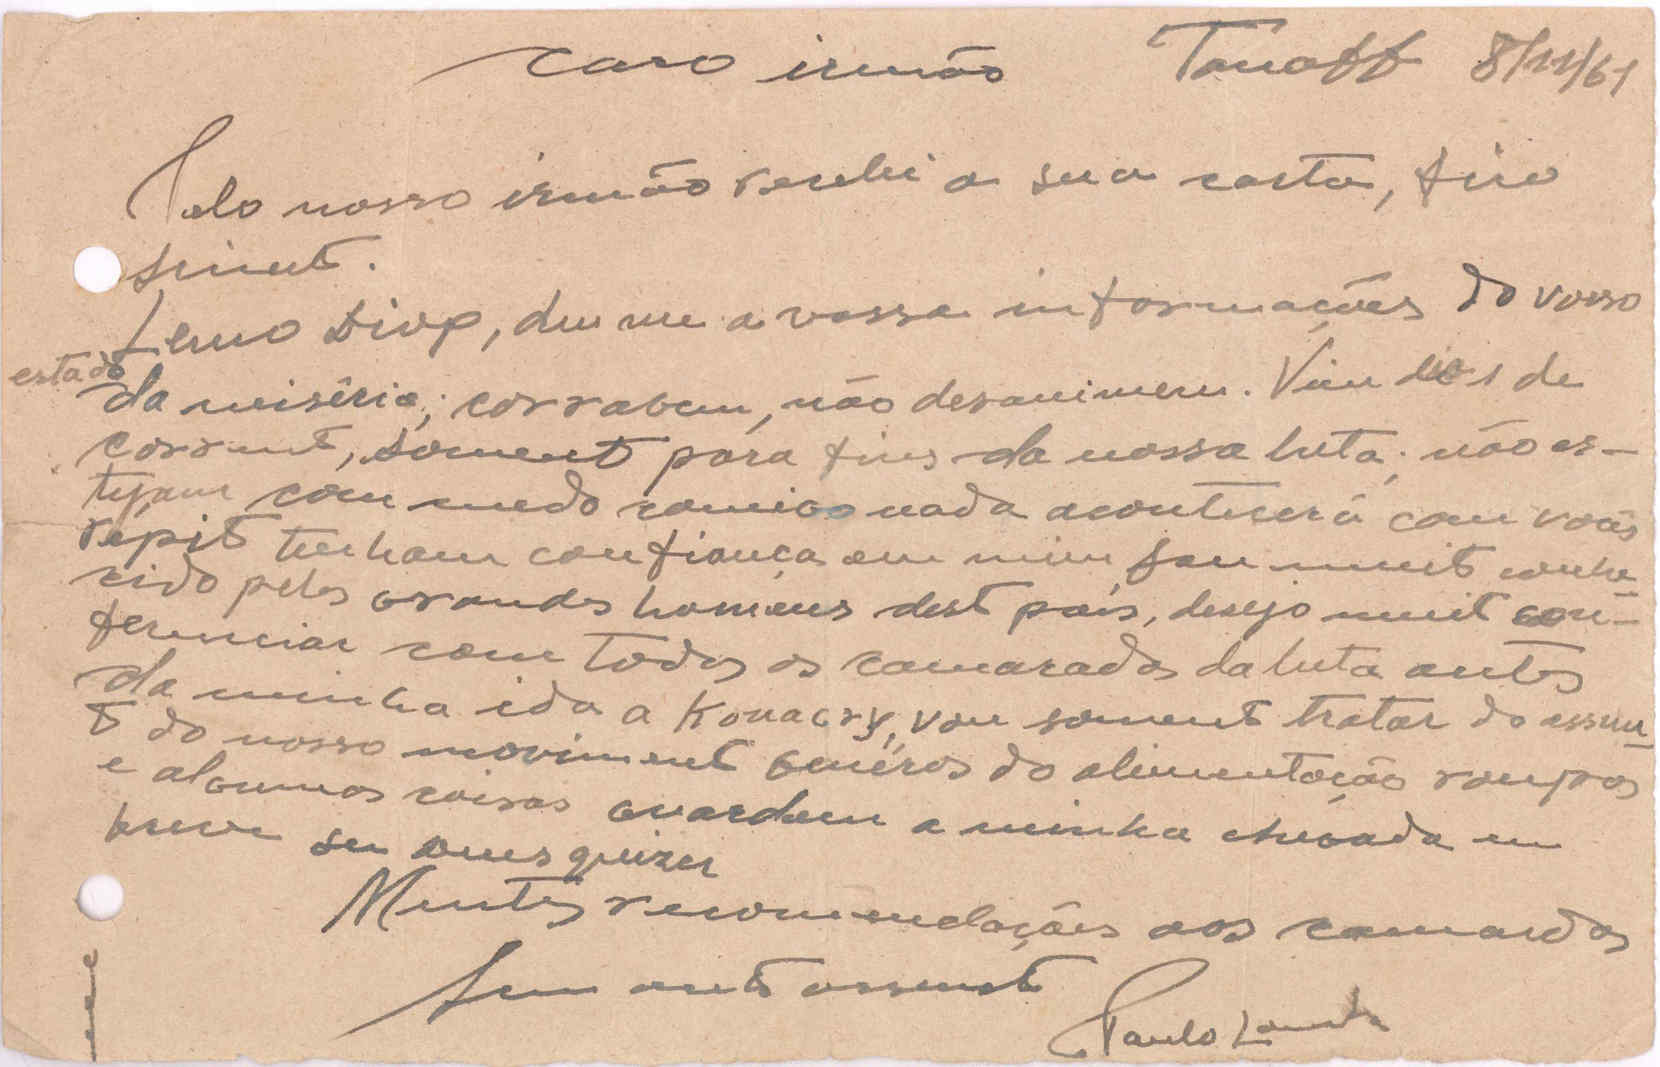 Caro irmão Tanaff 8/11/61
Pelo nosso irmão recebi a sua carta, fico
sient.
Leno Diop, deu me a vossa informações do vosso
estado
da miséria; corragem, não desanimem. Vim de
corrent, soment para fins da nossa luta; não es-
tejam com medo comigo nada acontecerá com vocês
répito tenham confiança em mim sou muito conhe
cido pelos grandes homens dest país, desejo muit con-
ferenciar com todos os camaradas da luta antes
da minha ida a Konacry, vou soment tratar do assun_
to do nosso moviment genéros do alimentação roupas
e algumas coisas guardem a minha chegada em
breve se Deus quizer
Muntas recomendações aos camaradas
Sem outo assunto
Paulo